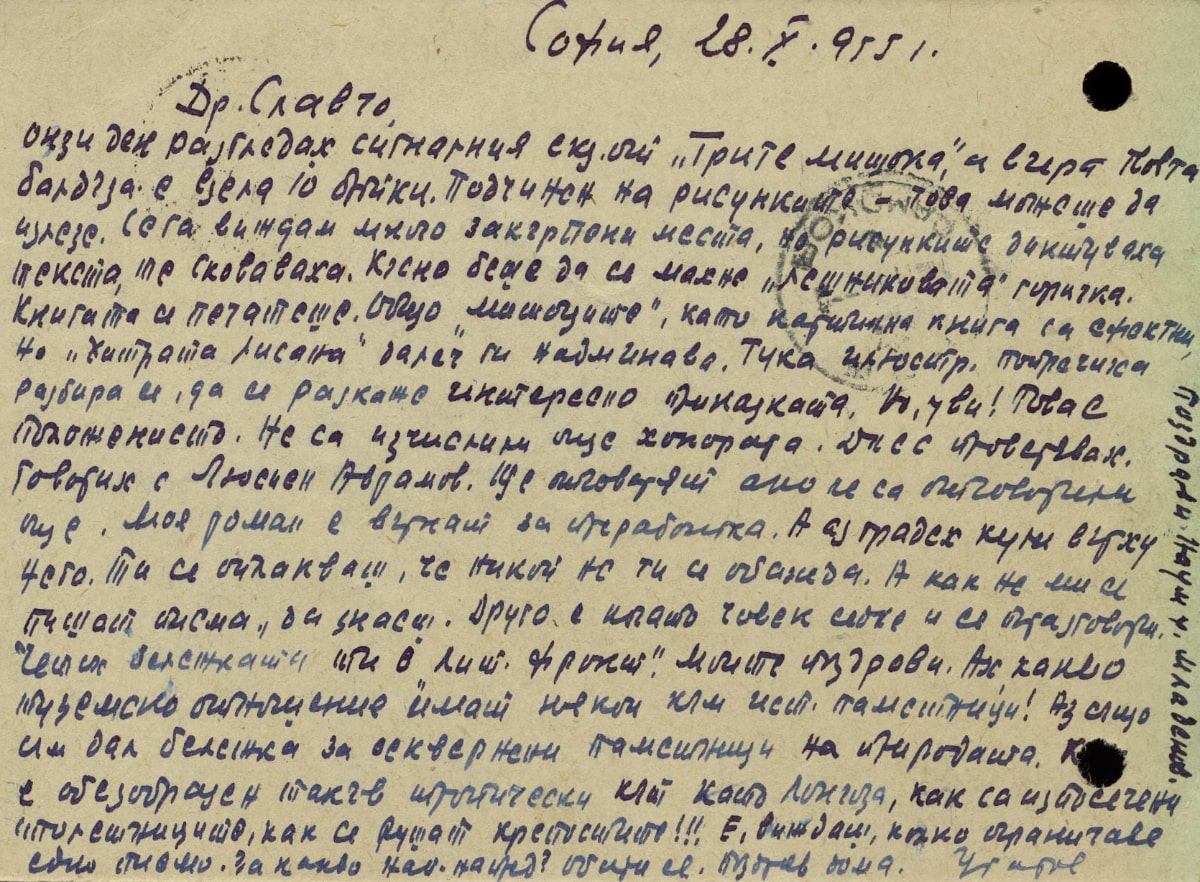 София, 28.X.955 г.
Др. Славчо,
онзи ден разгледах сигналния екз. от „Трите мишока“, а вчера
е взела 10 бройки. Подчинен на рисунките – това можеше да
излезе. Сега виждам много закърпени места, но рисунките диктуваха
текста, те сковаваха. Късно беше да се махне „лешниковата“ горичка.
Книгата се печатеше. Общо „мишоците“, като картинна книга са ефектни,
но „Хитрата лисана“ далеч ги надминава. Тука илюстр. попречиха
разбира се, да се разкаже интересно приказката. Но, уви! Това е
положението. Не са изчислили още хонорара. Днес проверявах.
Говорих с Люсиен Аврамов. Ще отговорят ако не са отговорили
още. Моя роман е върнат за преработка. А аз градех кули върху
него. Ти се оплакваш, че никой не ти се обажда. А как не ми се
пишат писма, да знаеш. Друго е когато човек седне и се поразговори.
Четох бележката ти в „Лит. фронт“. Моите поздрави. Ах какво
туземско отношение имат някои към ист. паметници! Аз също
съм дал бележка за осквернени паметници на природата.
е обезобразен такъв тропически кът като Лонгоза, как са изпосечени
как се рушат крепостите!!! Е, виждаш, колко ограничава
едно писмо. За какво по-напред? Обади се. Поздрав дома.
Поздрави Наум и Младенов.